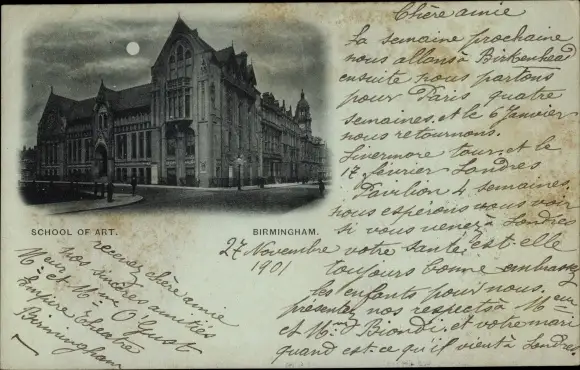 Chère amie
La semaine prochaine
nous allons à Birkenhead
ensuite nous partons
pour Paris quatre
semaines, et le 6 Janvier
nous retournons.
Livermore tour, et le
17 février Londres
Pavilion 4 semaines,
nous espérons vous voir
si vous venez à Londres
votre santé est-elle
toujours bonne embrassez
les enfants pour nous.
présentez nos respects à Mr
et Mme Biondi. et votre mari
quand est-ce qu'il vient à Londres
SCHOOL OF ART.
BIRMINGHAM.
27 Novembre
1901
recevez chère amie
nos sincères amitiés
Mr et Mme O'Gust
Empire Theatre
Birmingham